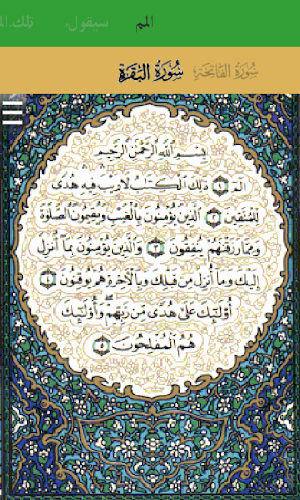 الم سيقول. تلك.الر
سُورَةُ الفَاتِحَةِ سُورَةُ البَقَرَةِ
بِسْمِ اللَّهِ الرَّحْمَٰنِ الرَّحِيمِ
الٓمٓ ١ ذَٰلِكَ الْكِتَابُ لَا رَيْبَ فِيهِ هُدًى
لِّلْمُتَّقِينَ ٢ الَّذِينَ يُؤْمِنُونَ بِالْغَيْبِ وَيُقِيمُونَ الصَّلَاةَ
وَمِمَّا رَزَقْنَاهُمْ يُنفِقُونَ ٣ وَالَّذِينَ يُؤْمِنُونَ بِمَا أُنزِلَ
إِلَيْكَ وَمَا أُنزِلَ مِن قَبْلِكَ وَبِالْآخِرَةِ هُمْ يُوقِنُونَ ٤
أُولَٰئِكَ عَلَىٰ هُدًى مِّن رَّبِّهِمْ وَأُولَٰئِكَ
هُمُ الْمُفْلِحُونَ ٥